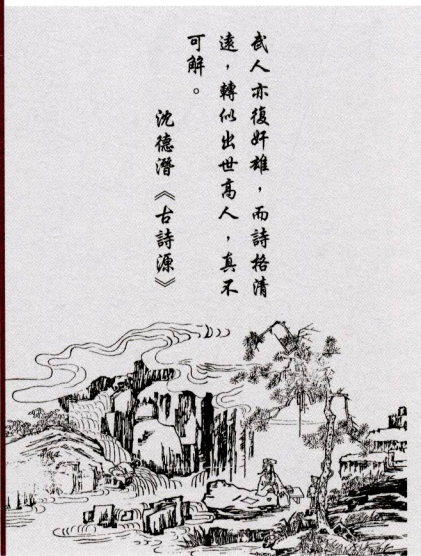 武人亦復奸雄，而詩格清
遠，轉似出世高人，真不
可解。
沈德潛《古詩源》